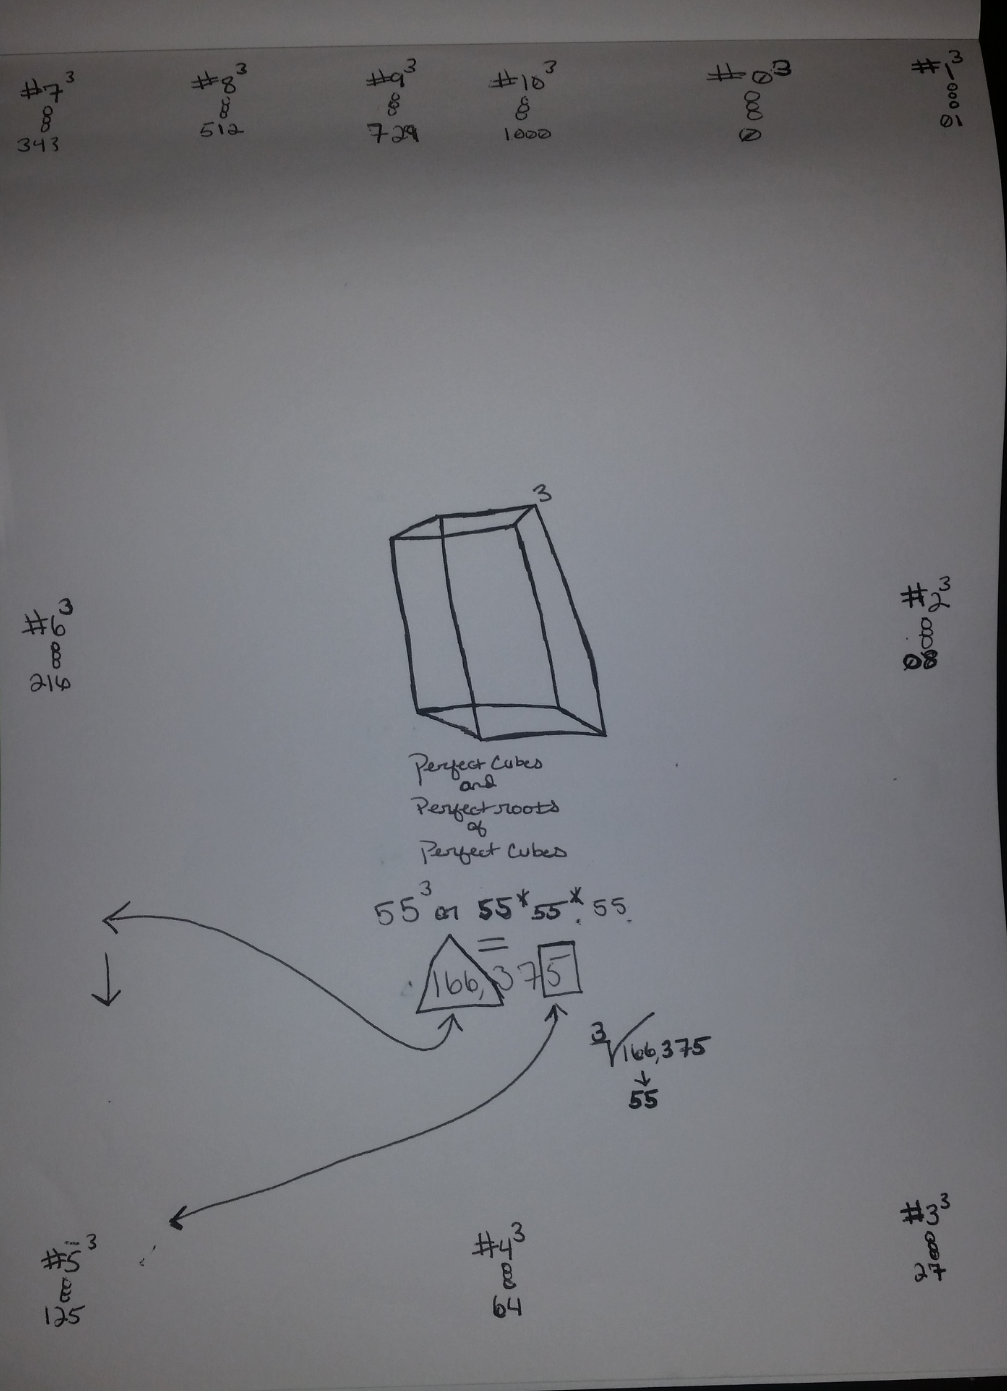 #7³
8
343
#8³
8
512
#9³
8
729
#10³
8
1000
#0³
8
0
#1³
01
#6³
8
216
3
#2³
08
Perfect Cubes
and
Perfect roots
of
Perfect Cubes
55³ or 55*55*55.
=
166,375
³√166,375
↓
55
#5³
125
#4³
8
64
#3³
8
27